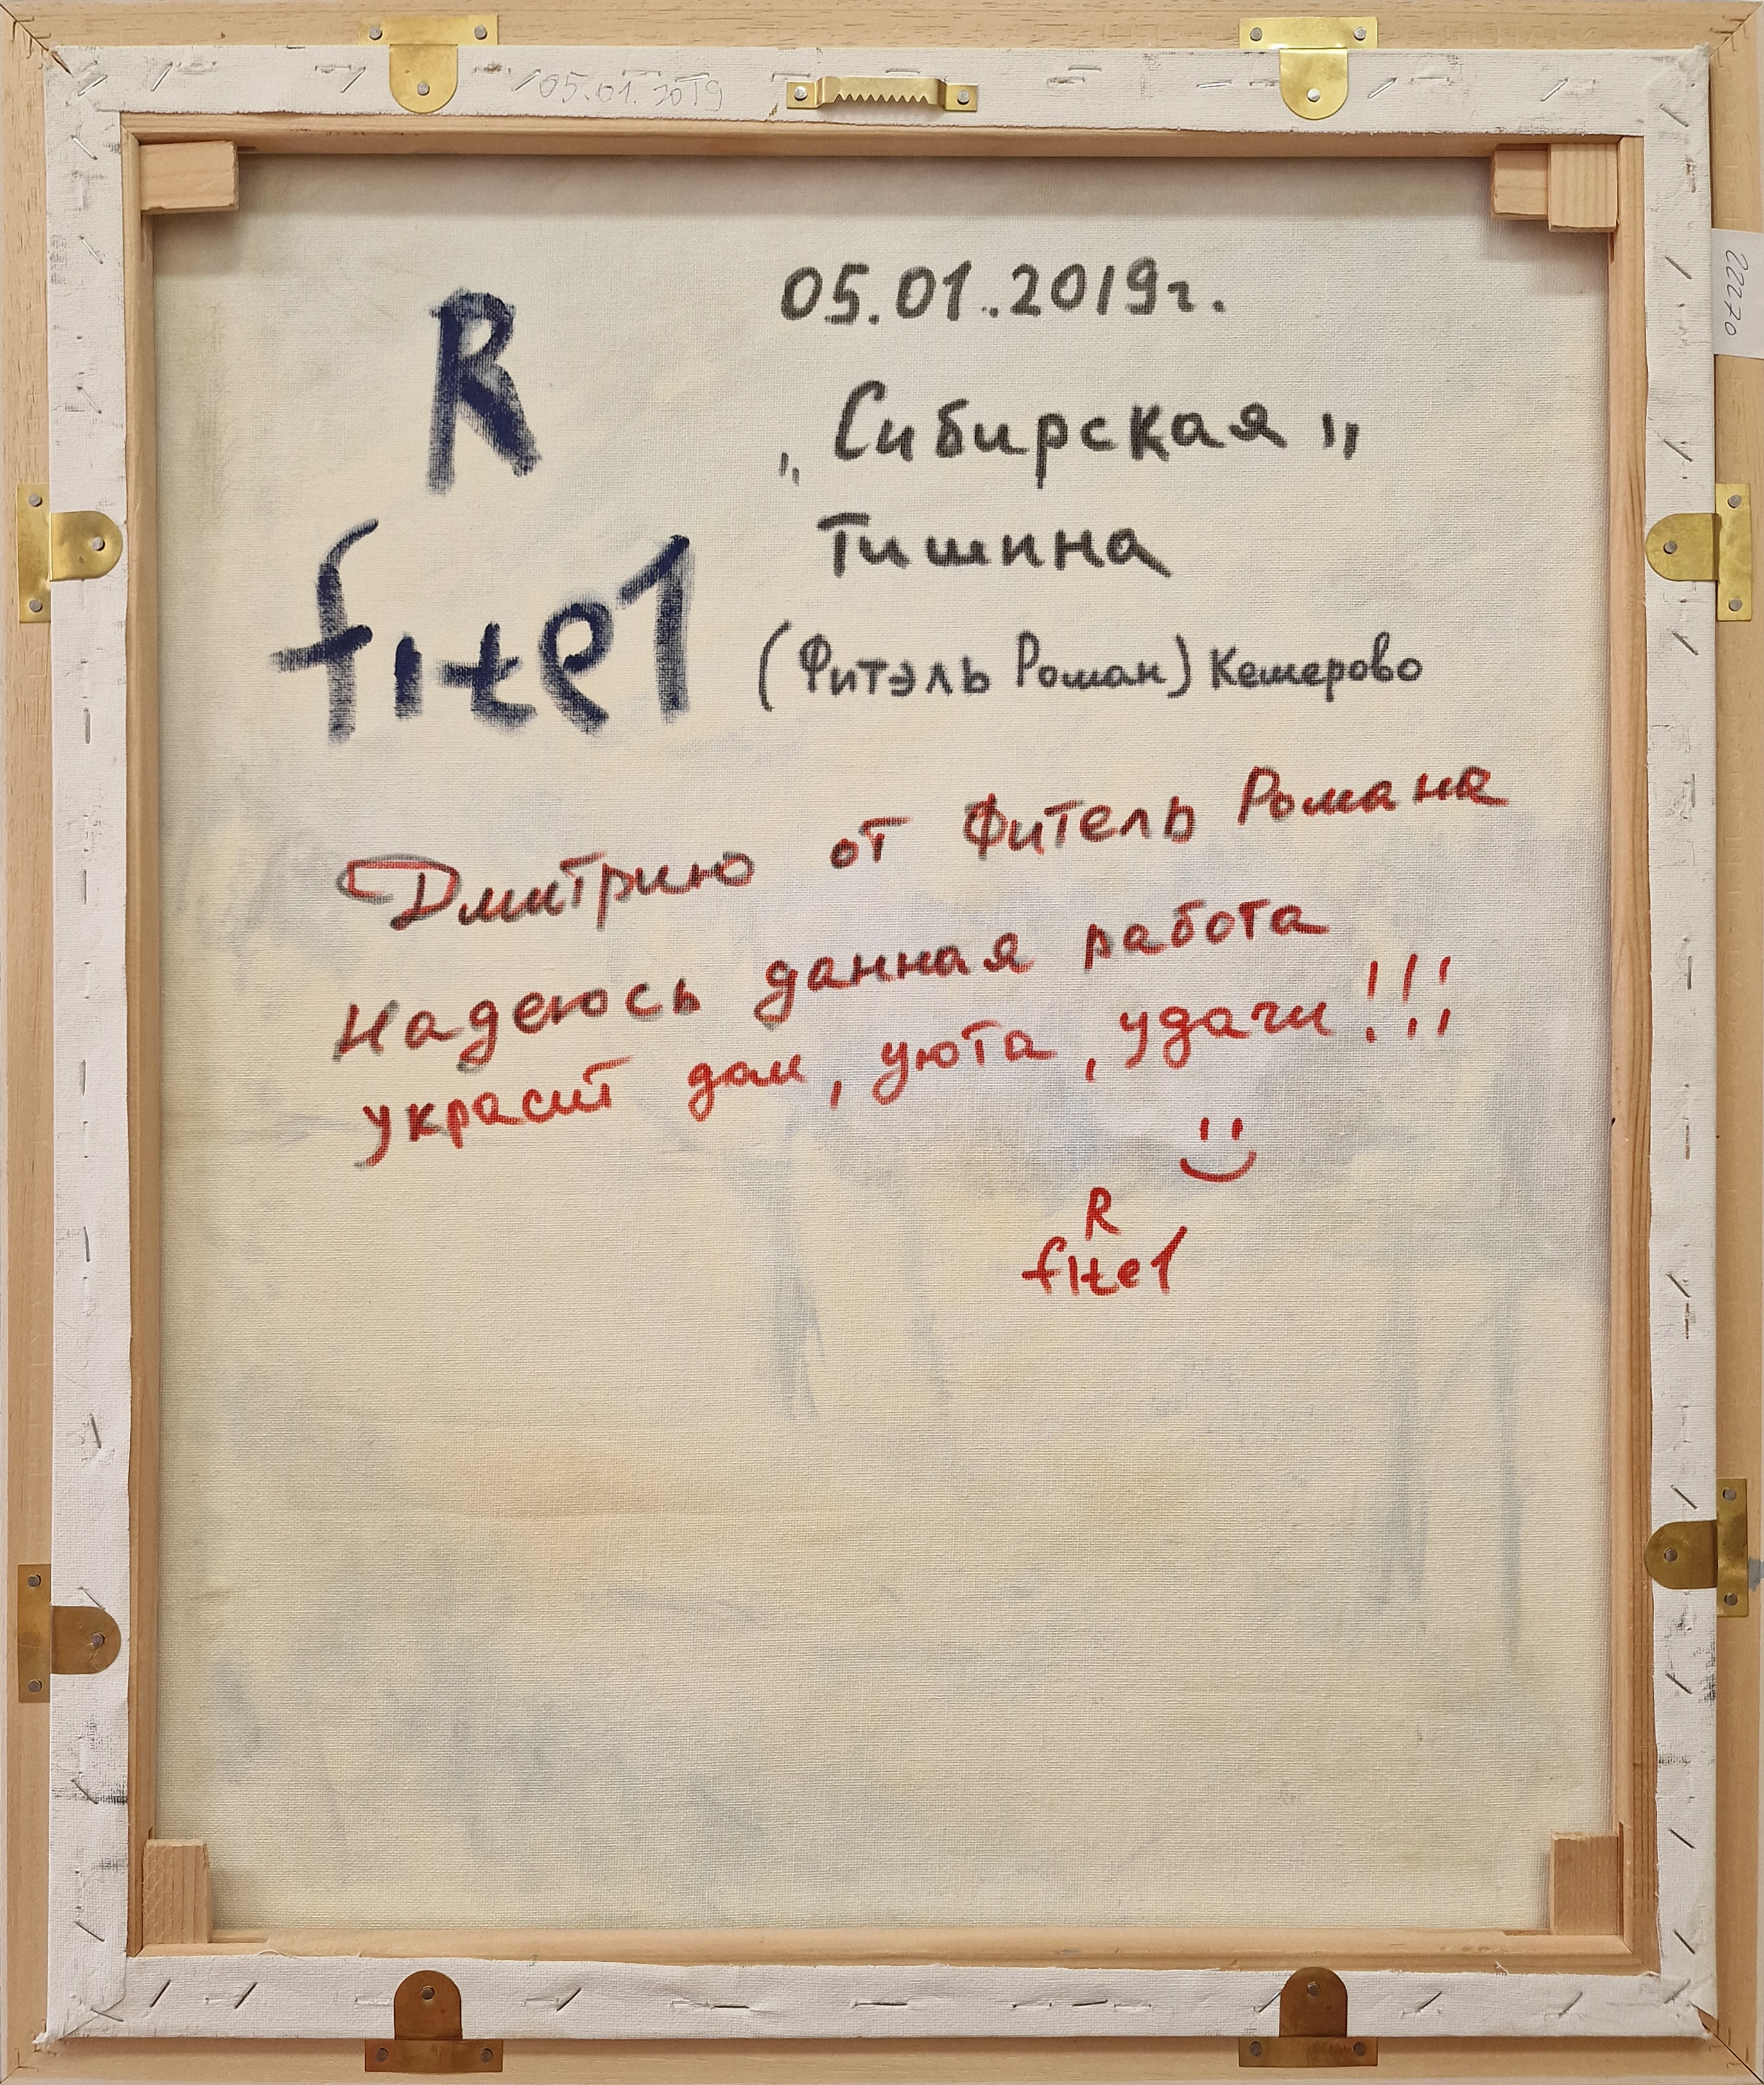 05.01.2019
22270
R
fitel
05.01.2019г.
„Сибирская"
Тишина
(Фитэль Роман) Кемерово
Дмитрию от Фитель Романа
Надеюсь данная работа
украсит дом, уюта, удачи!!!
R
fitel